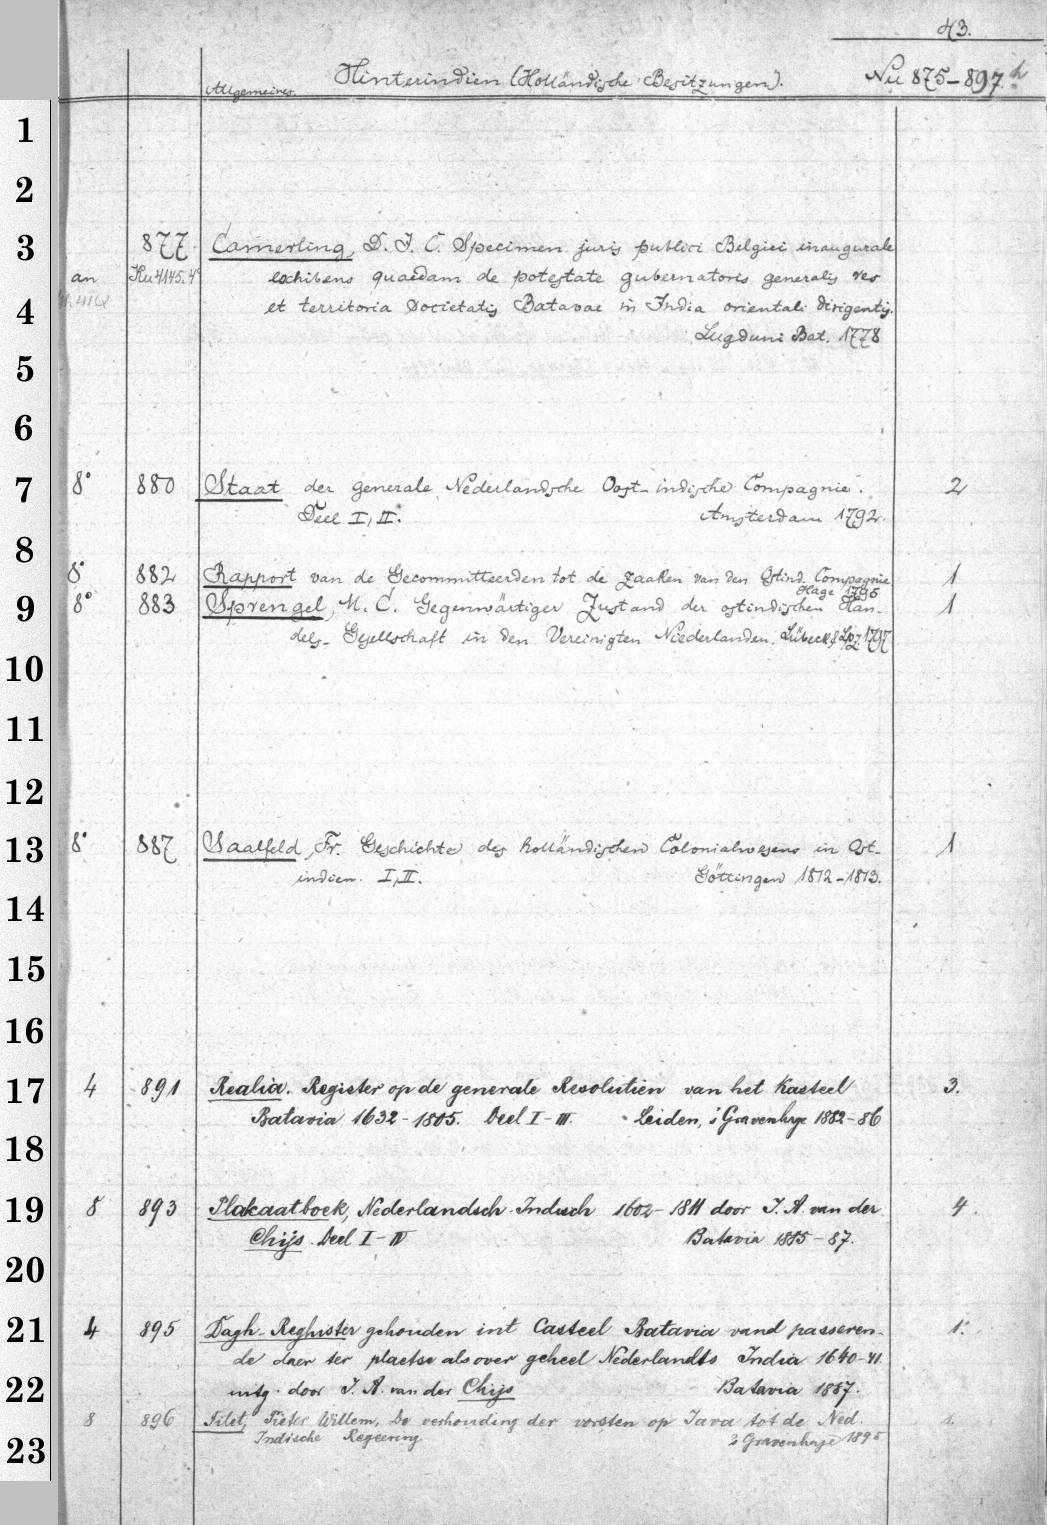 43.
Allgemeines. Hinterindien (Holländische Besitzungen). Nu 875-897 h
1
2
3 877 Camerling, D. J. C. Specimen juris publici Belgici inaugurale
an Ku 4145.4° exhibens quaedam de potestate gubernatoris generalis res
4 et territoria Societatis Batavae in India orientali dirigentis.
Lugduni Bat. 1778
5
6
7 8° 880 Staat der generale Nederlandsche Oost-indische Compagnie. 2
Deel I, II. Amsterdam 1792.
8
8° 882 Rapport van de Gecommitteerden tot de zaaken van den Ostind. Compagnie 1
Hage 1795
9 8° 883 Sprengel, M. C. Gegenwärtiger Zustand der ostindischen Han- 1
dels-Gesellschaft in den Vereinigten Niederlanden. Lübeck & Lpz 1797
10
11
12
13 8° 887 Saalfeld, Fr. Geschichte des holländischen Colonialwesens in Ost- 1
indien. I, II. Göttingen 1812-1813.
14
15
16
17 4 891 Realia. Register op de generale Resolutien van het Kasteel 3.
Batavia 1632-1805. Deel I-III. Leiden, s'Gravenhage 1882-86
18
19 8 893 Plakaatboek, Nederlandsch-Indisch 1602-1811 door J. A. van der 4
Chijs. Deel I-IV Batavia 1885-87.
20
21 4 895 Dagh-Reghister gehouden int Casteel Batavia vand passeren- 1.
de daer ter plaetse als over geheel Nederlandts India 1640-41
22 uitg. door J. A. van der Chijs Batavia 1887.
8 896 Filet, Pieter Willem, De verhouding der vorsten op Java tot de Ned. 1.
23 Indische Regeering 's Gravenhage 1895